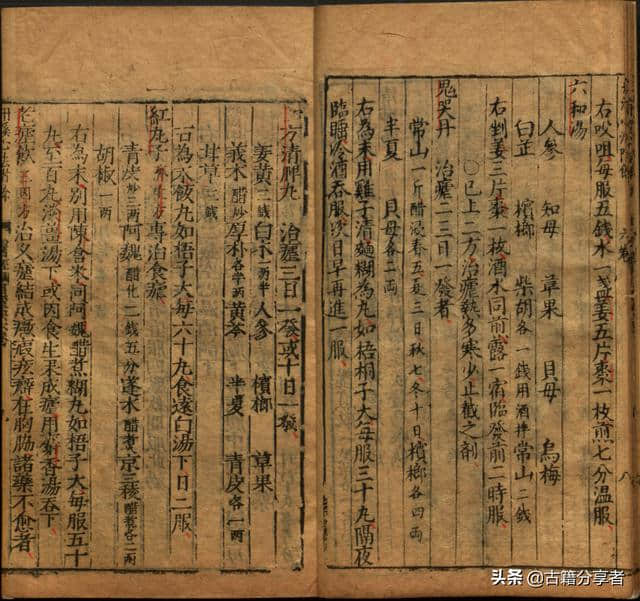 右㕮咀每服五錢水一盞姜五片棗一枚煎七分溫服
六和湯
人參 知母 草果 貝母 烏梅
白芷 檳榔 柴胡各一錢用酒拌常山二錢
右剉姜三片棗一枚酒水同煎露一宿臨發前二時服
○已上二方治瘧熱多寒少止截之劑
鬼哭丹 治瘧二三日一發者
常山一斤醋浸春五夏三日秋七冬十日檳榔各四兩
半夏 貝母各二兩
右為末用雞子清麵糊為丸如梧桐子大每服三十丸隔夜
臨睡冷酒吞服次日早再進一服
一方清脾丸 治瘧三日一發或十日一發
姜黃三錢白朮一兩半人參 檳榔 草果
莪朮醋炒厚朴各半兩黃芩 半夏 青皮各一兩
甘草三錢
右為末飯丸如梧子大每六十丸食遠白湯下日二服
紅丸子 專治食瘧
青皮炒三兩阿魏醋化二錢五分蓬朮醋煮京三稜醋煮各二兩
胡椒一兩
右為末別用陳倉米同阿魏醋煮糊丸如梧子大每服五十
丸至百丸淡薑湯下或因食生果成瘧用麝香湯吞下
老瘧飲 治久瘧結成癥瘕痃癖在胸脇諸藥不愈者
頭條 @古籍分享者